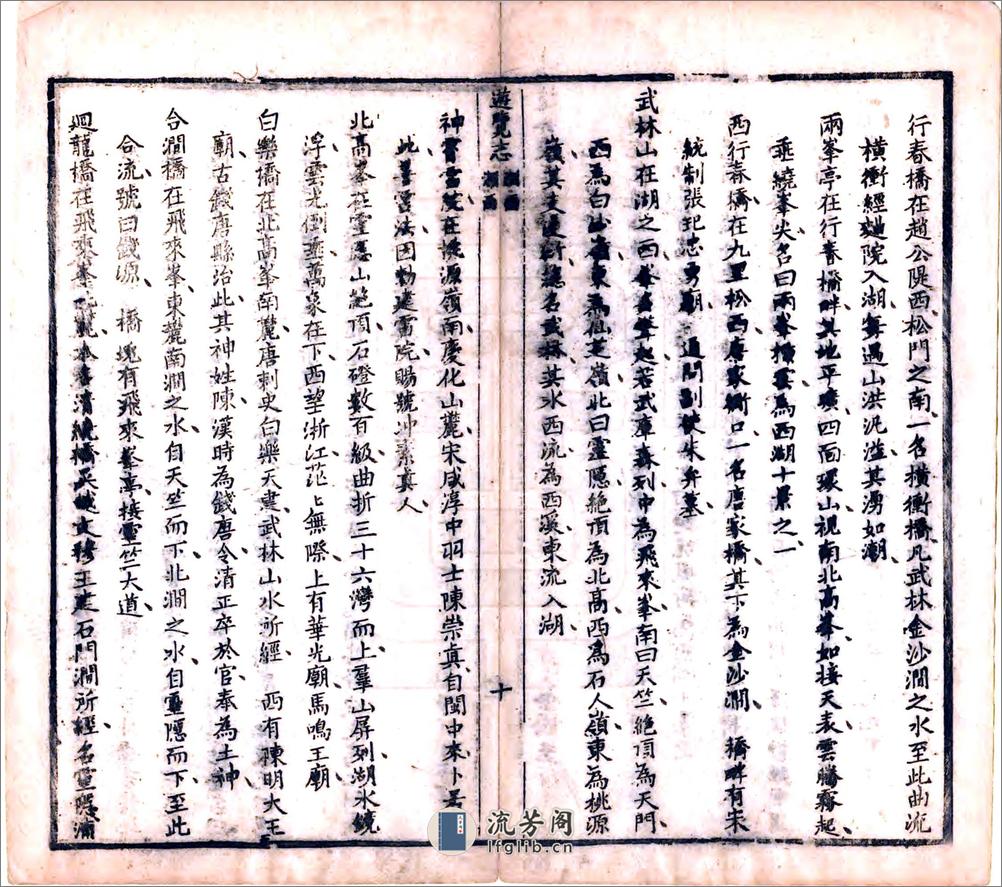 行春橋在趙公隄西松門之南一名橫衝橋凡武林金沙澗之水至此曲流
橫衝經麯院入湖每遇山洪汎溢其湧如潮
兩峯亭在行春橋畔其地平曠四面環山視南北高峯如接天表雲騰霧起
乘繞峯尖名曰兩峯插雲為西湖十景之一
西行春橋在九里松西唐家衝口一名唐家橋其下為金沙澗 橋畔有宋
統制張玘忠勇廟 通問副使朱弁墓
武林山在湖之西峯巒聳起若武庫森列中為飛來峯南曰天竺絕頂為天門
西為白沙嶺東為仙芝嶺北曰靈隱絕頂為北高西為石人嶺東為桃源
嶺其支復衍總名武林其水西流為西溪東流入湖
遊覽志
十
神霄雷院在桃源嶺南慶化山麓宋咸淳中羽士陳崇真自閩中來卜居
此善雷法因勅建雷院賜號沖素真人
北高峯在靈隱山絕頂石磴數百級曲折三十六灣而上羣山屏列湖水鏡
浮雲光倒垂萬象在下西望浙江茫茫無際上有華光廟馬鳴王廟
白樂橋在北高峯南麓唐刺史白樂天建武林山水所經 西有陳明大王
廟古錢唐縣治此其神姓陳漢時為錢唐令清正卒於官奉為土神
合澗橋在飛來峯東麓南澗之水自天竺而下北澗之水自靈隱而下至此
合流號曰錢源 橋塊有飛來峯亭接靈竺大道
迴龍橋在飛來峯北麓 清繞橋吳越文穆王建石門澗所經名靈隱浦
流芳阁
lfglib.cn